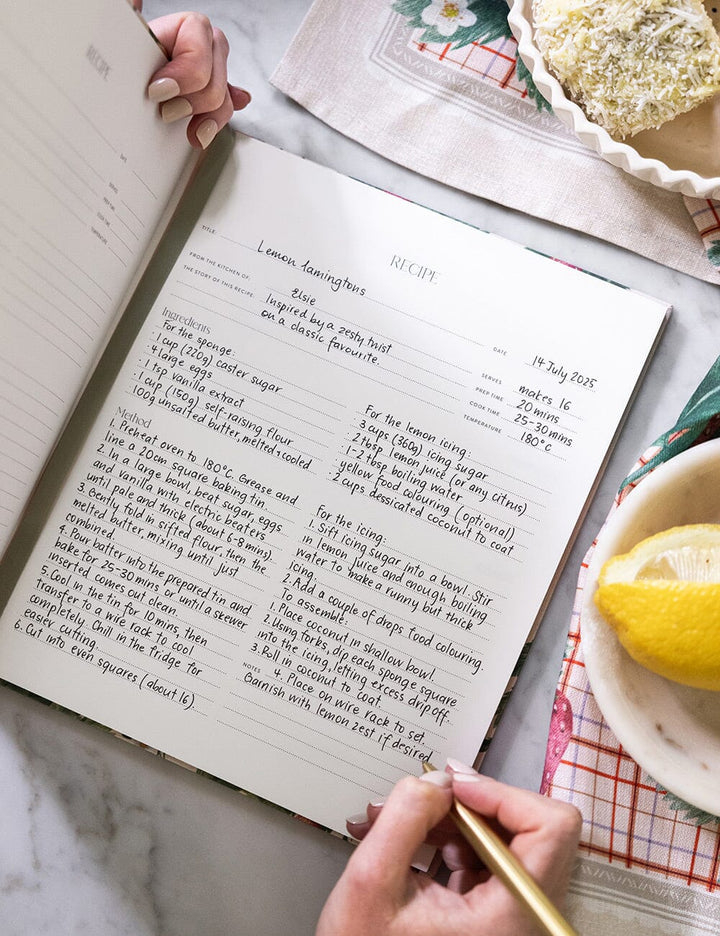 RECIPE
DATE
SERVES
PREP TIME
COOK TIME
TEMPERATURE
RECIPE
TITLE: Lemon lamingtons
FROM THE KITCHEN OF: Elsie
THE STORY OF THIS RECIPE: Inspired by a zesty twist
on a classic favourite.
DATE 14 July 2025
SERVES makes 16
PREP TIME 20 mins
COOK TIME 25-30 mins
TEMPERATURE 180°c
Ingredients
For the sponge:
· 1 cup (220g) caster sugar
· 4 large eggs
· 1 tsp vanilla extract
· 1 cup (150g) self-raising flour
· 100g unsalted butter, melted & cooled
For the lemon icing:
· 3 cups (360g) icing sugar
· 2 tbsp lemon juice (or any citrus)
· 1-2 tbsp boiling water
· yellow food colouring (optional)
· 2 cups dessicated coconut to coat
Method
1. Preheat oven to 180°c. Grease and
line a 20cm square baking tin.
2. In a large bowl, beat sugar, eggs
and vanilla with electric beaters
until pale and thick (about 6-8 mins).
3. Gently fold in sifted flour, then the
melted butter, mixing until just
combined.
4. Pour batter into the prepared tin and
bake for 25-30 mins or until a skewer
inserted comes out clean.
5. Cool in the tin for 10 mins, then
transfer to a wire rack to cool
completely. Chill in the fridge for
easier cutting.
6. Cut into even squares (about 16)
For the icing:
1. Sift icing sugar into a bowl. Stir
in lemon juice and enough boiling
water to make a runny but thick
icing.
2. Add a couple of drops food colouring.
To assemble:
1. Place coconut in shallow bowl.
2. Using forks, dip each sponge square
into the icing, letting excess drip off.
3. Roll in coconut to coat.
NOTES 4. Place on wire rack to set.
Garnish with lemon zest if desired